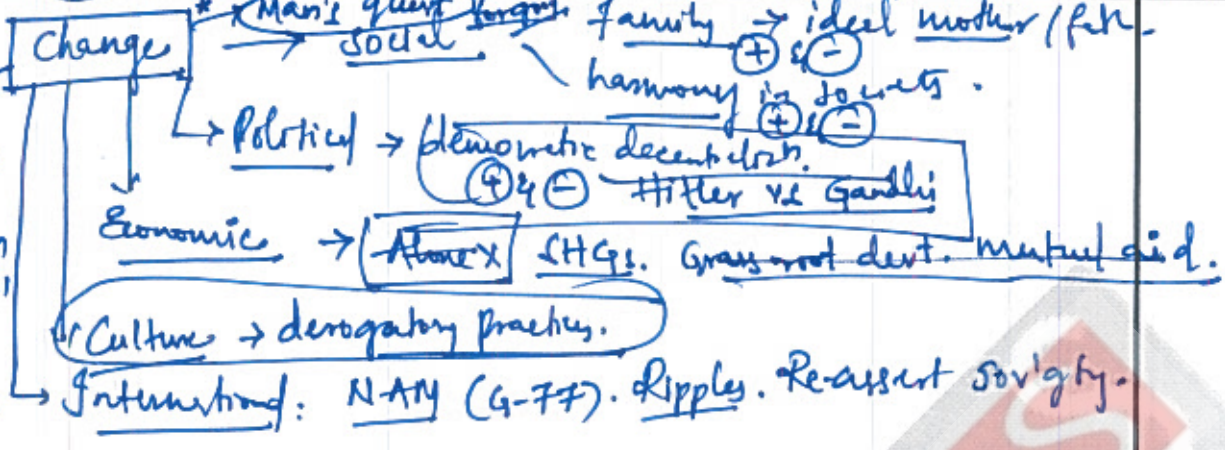 * Man's quest
Change → social family → ideal mother / fath.
+ & -
harmony in society.
+ & -
→ Political → democratic decentralisn.
+ & - Hitler vs Gandhi
Economic → Alone X SHGs. Grassroot devt. mutual aid.
Culture → derogatory practices.
→ International: NAM (G-77). Ripples. Re-assert sov'gty.